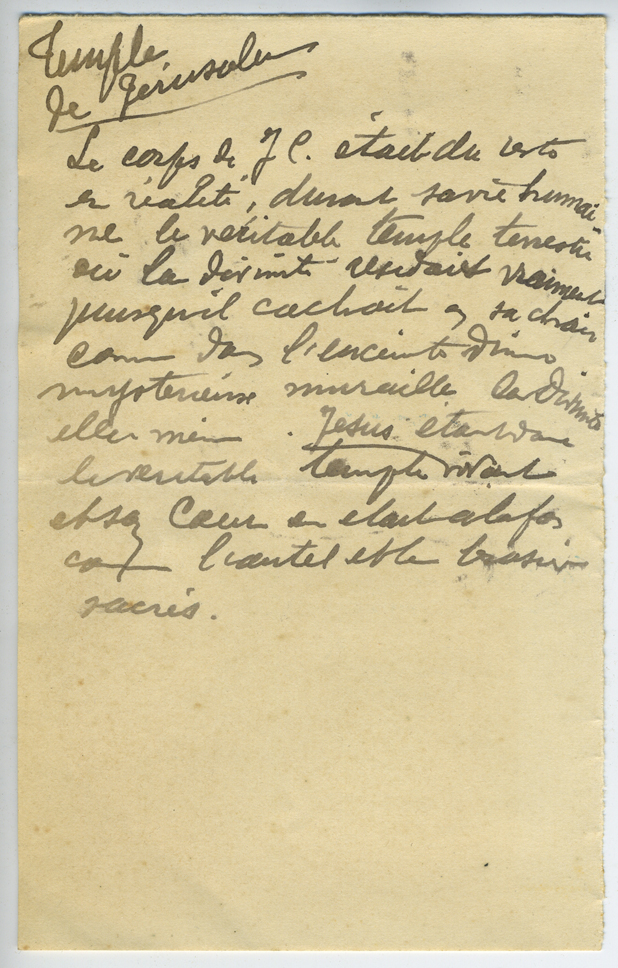 Temple
de Jérusalem
Le corps de J C. était du reste
en réalité, durant sa vie humai
ne le véritable temple terrestre
où la divinité résidait vraiment
puisqu'il cachait en sa chair
comme dans l'enceinte d'une
mystérieuse muraille la Divinité
elle même. Jésus était donc
le véritable temple vivant
et son Cœur en était à la fois
comme l'autel et le brasier
sacrés.